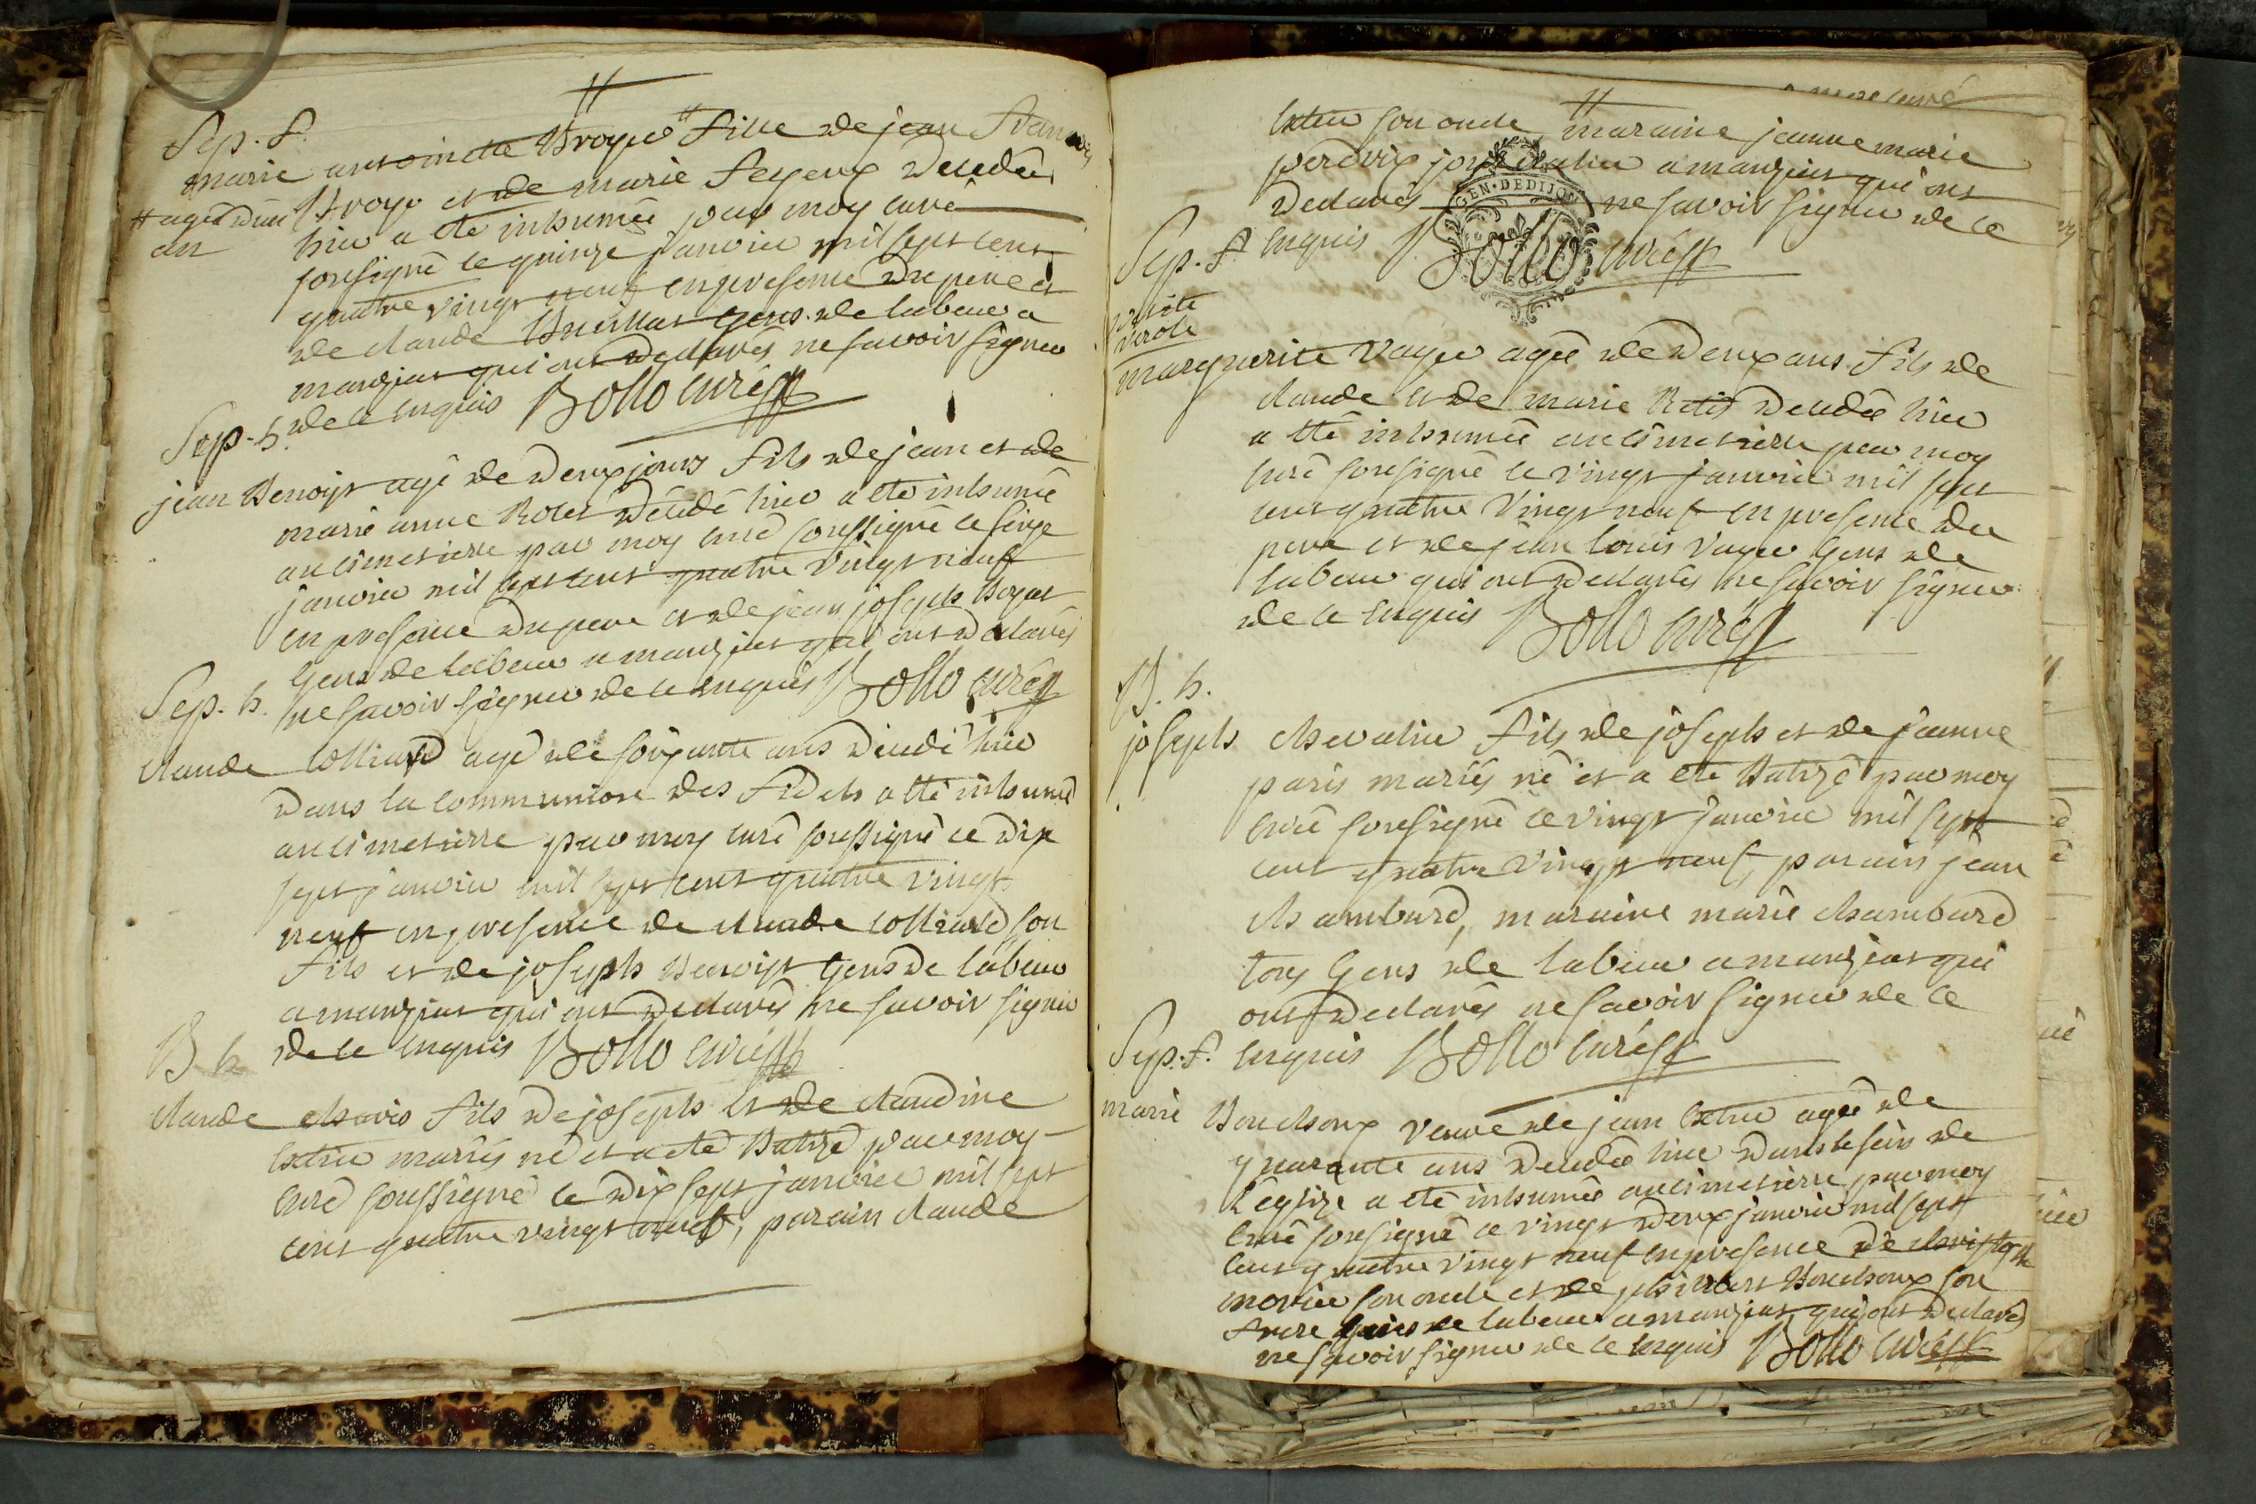 Sep. f.
marie antoinette Broye # fille de jean francois
# agée d'un
an
Broye et de marie feyeux decedée
hier a eté inhumée par moy curé
sousigné le quinze janvier mil sept cent
quatre vingt neuf en presence du pere et
de claude gens de labeur a
manziat qui ont declarés ne savoir signer
de ce enquis Bollo curé
Sep. h.
jean Benoist agé de deux jours fils de jean et de
marie anne Decedé hier a eté inhumé
au cimetierre par moy curé soussigné le seize
janvier mil sept cent quatre vingt neuf
en presence du pere et de jean joseph Boyat
gens de labeur a manziat qui ont declarés
ne savoir signer de ce enquis Bollo curé
Sep. h.
claude colliard agé de soixante ans decedé hier
dans la communion des fidels a eté inhumé
au cimetierre par moy curé soussigné le dix
sept janvier mil sept cent quatre vingt
neuf en presence de claude colliard son
fils et de joseph Benoist gens de labeur
a manziat qui ont declarés ne savoir signer
de ce enquis Bollo curé
B h
claude chavis fils de joseph et de claudine
mariés né et a eté Batizé par moy
curé soussigné le dix sept janvier mil sept
cent quatre vingt neuf, parain claude
son oncle, maraine jeanne marie
perdrix tous a manziat qui ont
declarés ne savoir signer de ce
enquis Bollo curé
GEN. DE DIJON
Sep. f.
petite
verole
marguerite Voyer agée de deux ans fils de
claude et de marie decedée hier
a eté inhumée au cimetierre par moy
curé sousigné le vingt janvier mil sept
cent quatre vingt neuf en presence du
pere et de jean louis Voyer gens de
labeur qui ont declarés ne savoir signer
de ce enquis Bollo curé
B. h.
joseph chevalier fils de joseph et de jeanne
paris mariés né et a eté Batizé par moy
curé sousigné le vingt janvier mil sept
cent quatre vingt neuf, parain jean
chambard, maraine marie chambard
tous gens de labeur a manziat qui
ont declarés ne savoir signer de ce
enquis Bollo curé
Sep. f.
marie Bouchoux veuve de jean agée de
quarante ans decedée hier dans le sein de
l'eglize a eté inhumée au cimetierre par moy
curé sousigné le vingt deux janvier mil sept
cent quatre vingt neuf en presence de christophe
morier son oncle et de philibert Bouchoux son
frere gens de labeur a manziat qui ont declarés
ne savoir signer de ce enquis Bollo curé